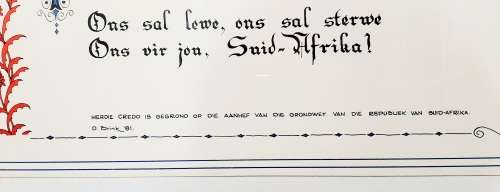 Ons sal lewe, ons sal sterwe
Ons vir jou, Suid-Afrika!
HERDIE CREDO IS GEGROND OP DIE AANHEF VAN DIE GRONDWET VAN DIE REPUBLIEK VAN SUID-AFRIKA.
D. Brink_'81.